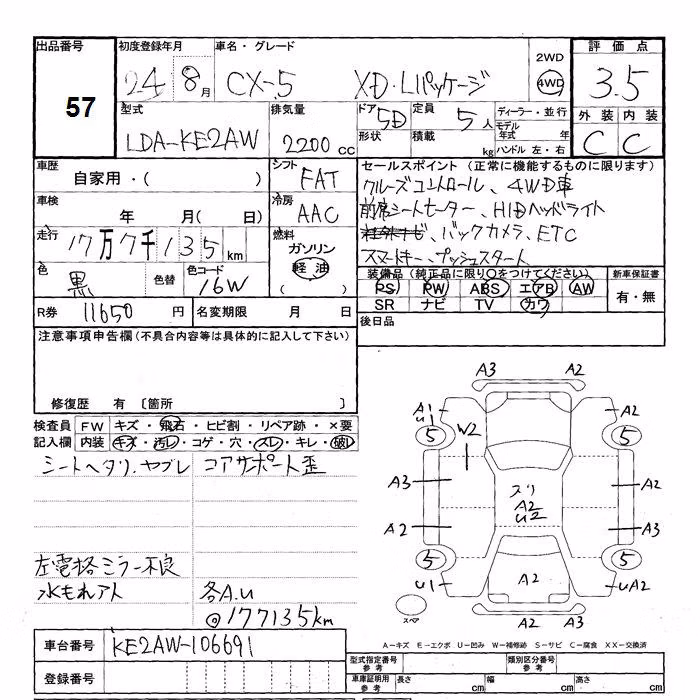 出品番号 初度登録年月 車名・グレード 2WD 評価点
57 24 8月 CX-5 XD・Lパッケージ 4WD 3.5
型式 排気量 ドア 5D 定員 5人 ディーラー・並行 外装 内装
LDA-KE2AW 2200cc 形状 積載 kg モデル年式 年 C C
ハンドル 左・右
車歴 シフト セールスポイント (正常に機能するものに限ります)
自家用・( ) FAT クルーズコントロール、4WD車
車検 冷房 前席シートヒーター、HIDヘッドライト
年 月(日) AAC バックカメラ、ETC
走行 17万7千135km 燃料 ガソリン 軽油 スマートキー、プッシュスタート
色 黒 色替 色コード 16W 装備品 (純正品に限り○をつけてください) 新車保証書
PS PW ABS エアB AW 有・無
SR ナビ TV カワ
R券 11650円 名変期限 月 日 後日品
注意事項申告欄(不具合内容等は具体的に記入して下さい)
修復歴 有 〔箇所 〕
検査員 FW キズ・飛石・ヒビ割・リペア跡・×要
記入欄 内装 キズ・汚レ・コゲ・穴・スレ・キレ・破レ
シートヘタリ、ヤブレ コアサポート歪
左電格ミラー不良
水もれアト 各A.U
@177135km
A3 A2
A1 U A2
5 W2 5
A3 スリ A2 U2 A2
A2 A3
5 5
U1 A2 UA2
スペア A2 A3
A−キズ E−エクボ U−凹み W−補修跡 S−サビ C−腐食 XX−交換済
車台番号 KE2AW-106691
登録番号
型式指定番号 参考 類別区分番号 参考
車庫証明用 参考 長さ cm 幅 cm 高さ cm